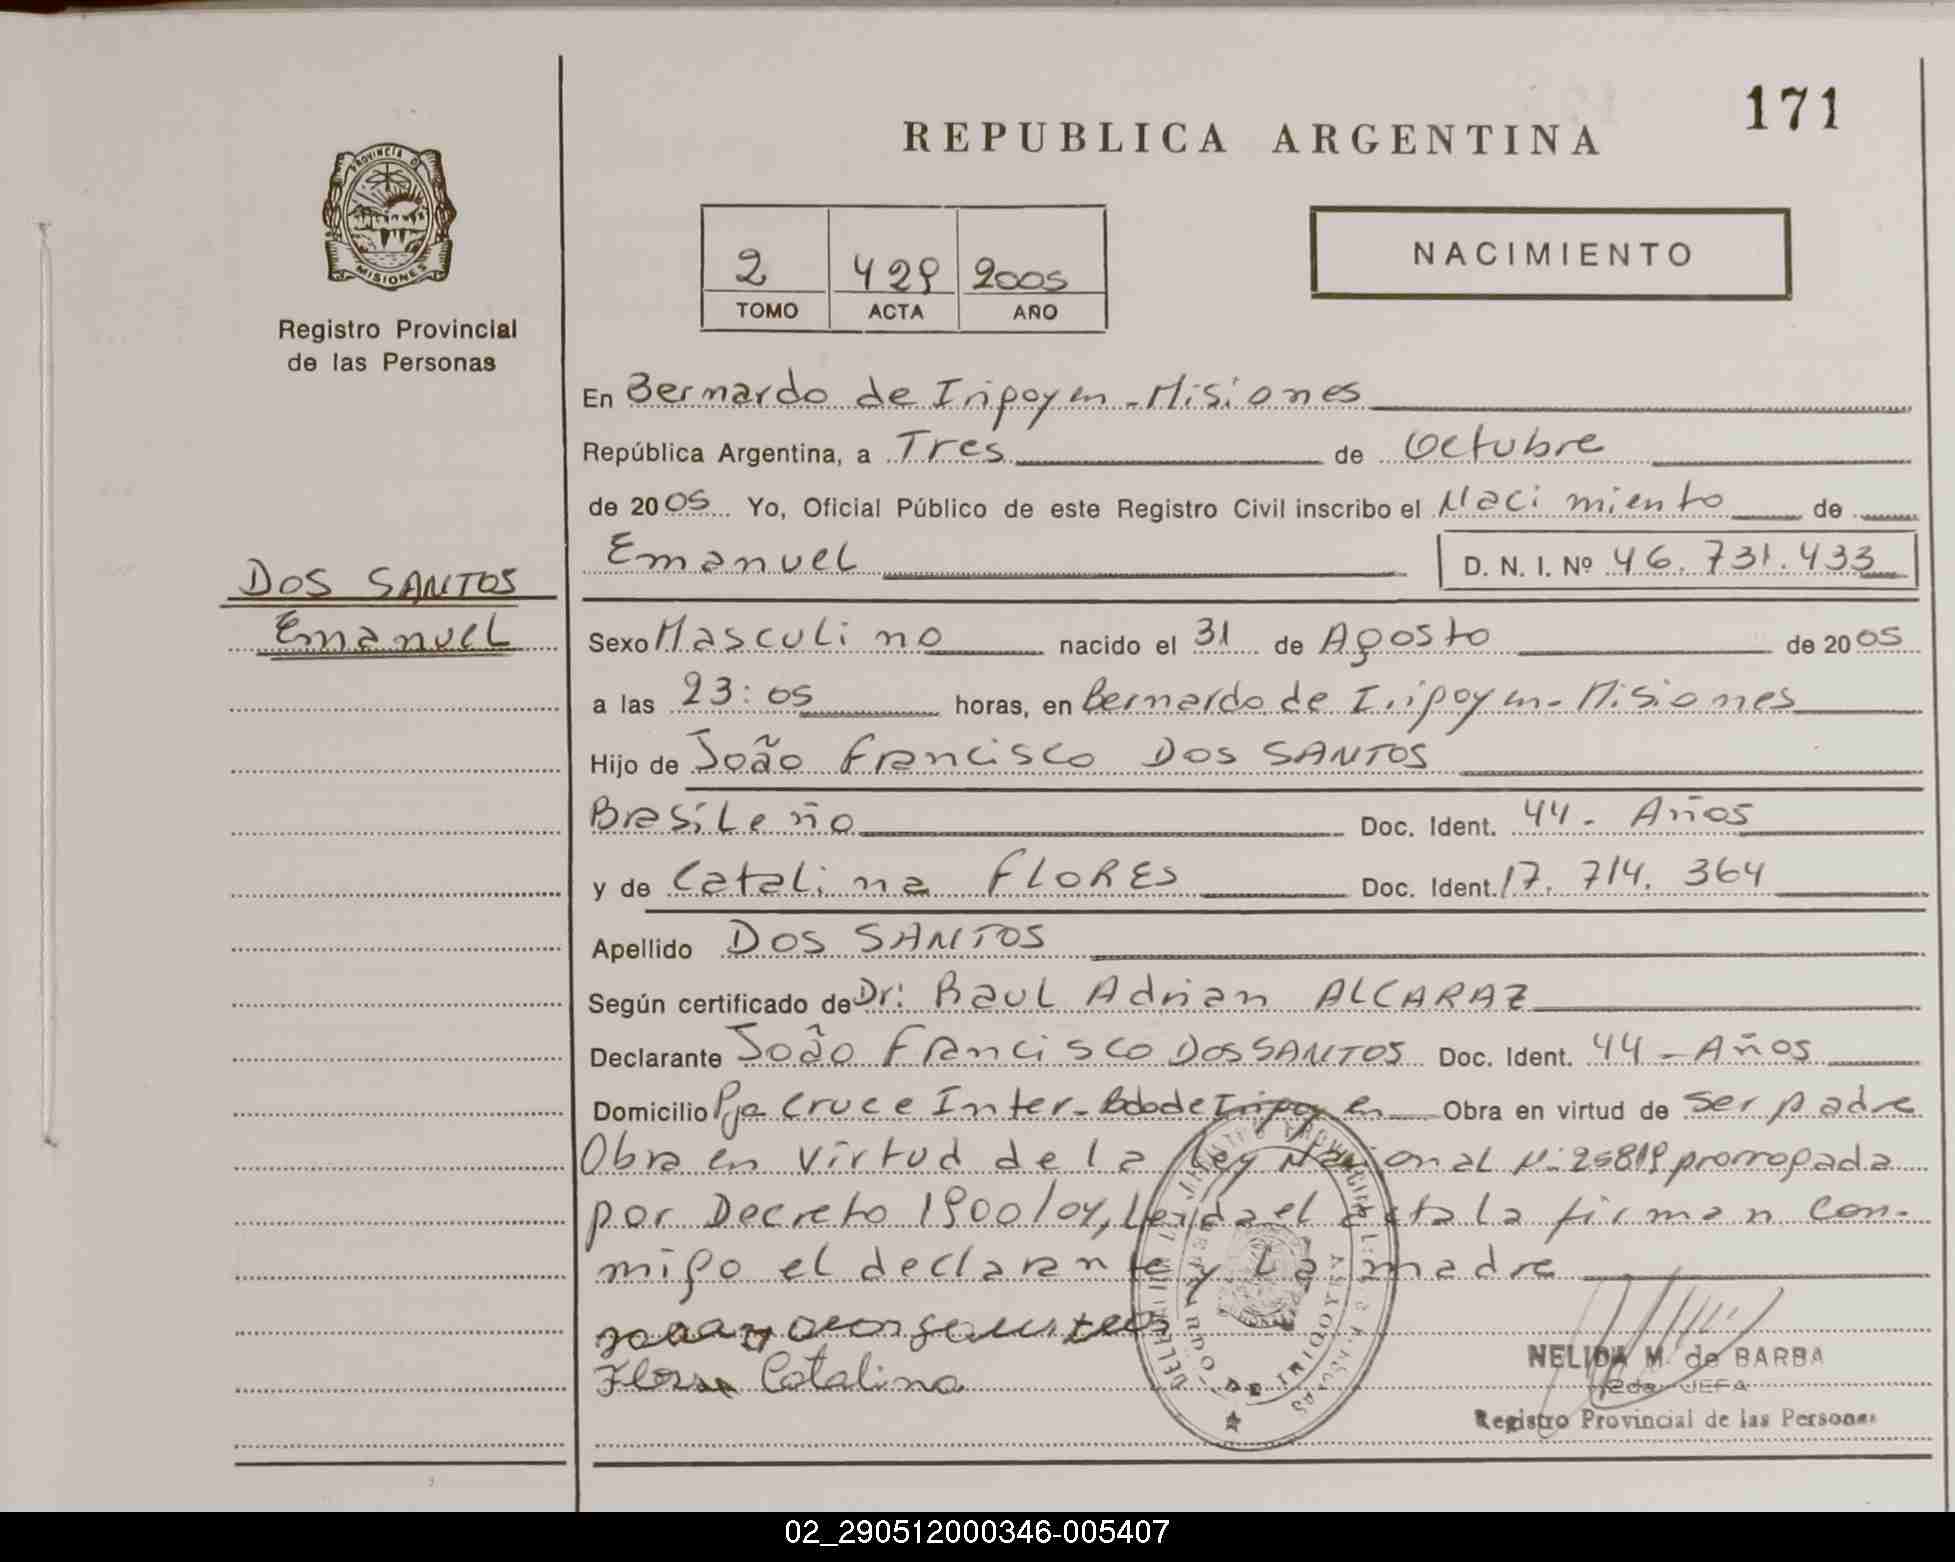 171
REPUBLICA ARGENTINA
NACIMIENTO
2 429 2005
TOMO ACTA AÑO
PROVINCIA D
MISIONES
Registro Provincial
de las Personas
En Bernardo de Irigoyen - Misiones
República Argentina, a Tres de Octubre
de 2005 Yo, Oficial Público de este Registro Civil inscribo el Nacimiento de
Emanuel D. N. I. Nº 46.731.433
DOS SANTOS
Emanuel
Sexo Masculino nacido el 31 de Agosto de 2005
a las 23:05 horas, en Bernardo de Irigoyen - Misiones
Hijo de João Francisco DOS SANTOS
Brasileño Doc. Ident. 44 - Años
y de Catalina FLORES Doc. Ident. 17. 714. 364
Apellido DOS SANTOS
Según certificado de Dr: Raul Adrian ALCARAZ
Declarante João Francisco DOS SANTOS Doc. Ident. 44 - Años
Domicilio Pje Cruce Inter - Bdo de Irigoyen Obra en virtud de ser padre
Obra en virtud de la Ley Nacional Nº 25819 prorrogada
por Decreto 1900/04, Leida el acta la firman con-
migo el declarante y la madre
Flores Catalina
DE IRIGOYEN
NELIDA M. de BARBA
2da JEFA
Registro Provincial de las Personas
02_290512000346-005407